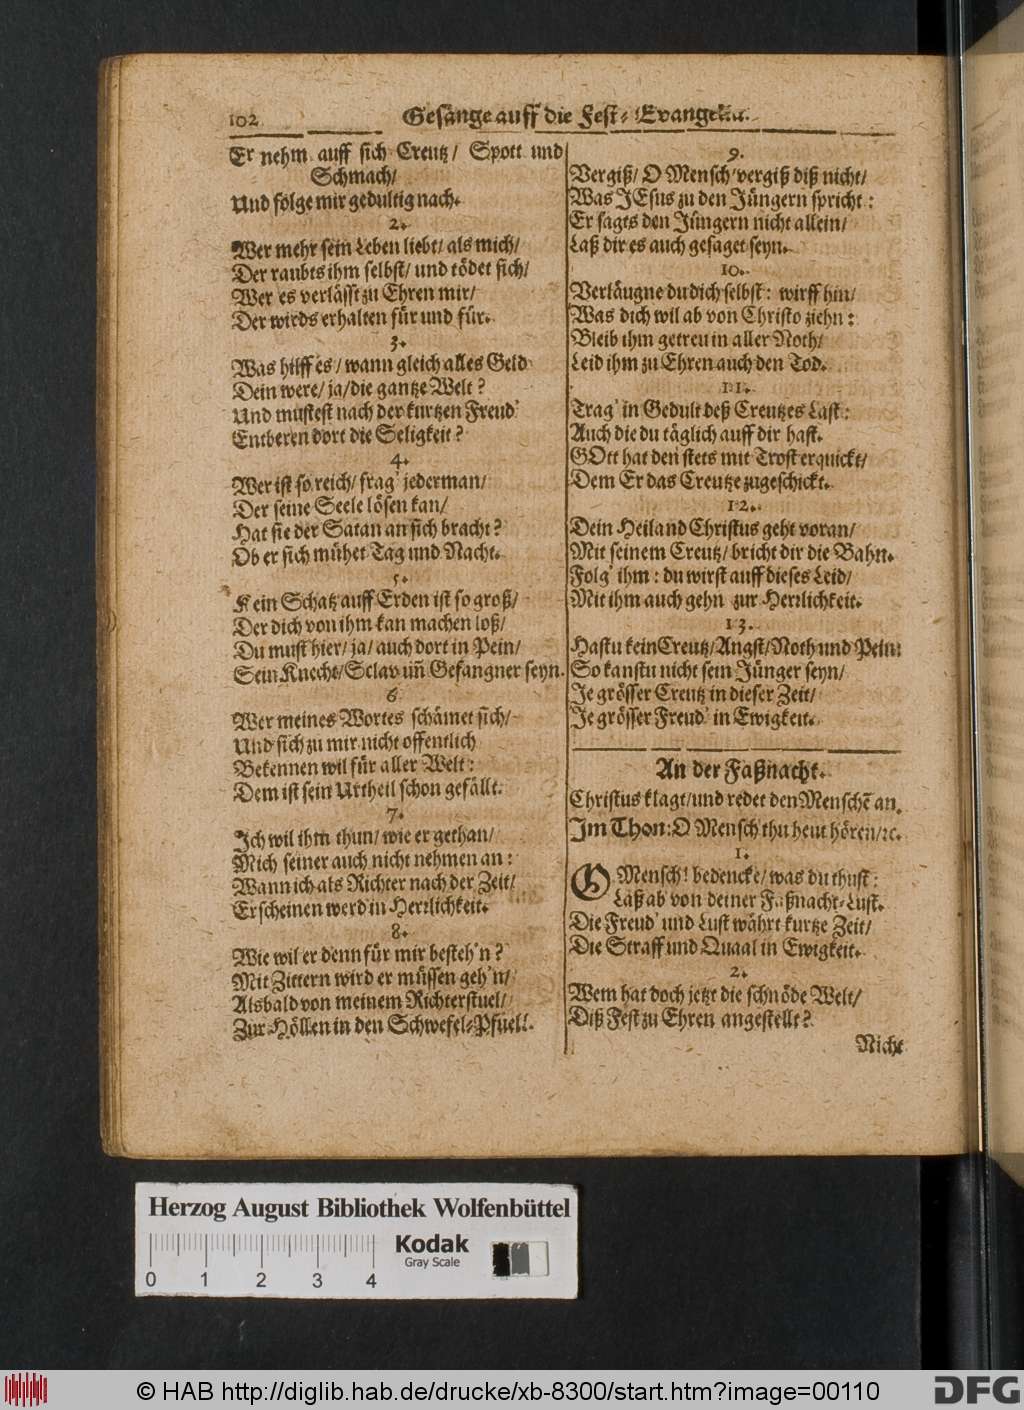 102
Gesänge auff die Fest- Evangelia.
Er nehm auff sich Creutz/ Spott und
Schmach/
Und folge mir gedultig nach.
2.
Wer mehr sein Leben liebt/ als mich/
Der raubts ihm selbst/ und tödet sich/
Wer es verlässt zu Ehren mir/
Der wirds erhalten für und für.
3.
Was hilff es/ wann gleich alles Geld
Dein were/ ja/ die gantze Welt?
Und müstest nach der kurtzen Freud'
Entberen dort die Seligkeit?
4.
Wer ist so reich/ frag' jederman/
Der seine Seele lösen kan/
Hat sie der Satan an sich bracht?
Ob er sich mühet Tag und Nacht.
5.
Kein Schatz auff Erden ist so groß/
Der dich von ihm kan machen loß/
Du must hier/ ja/ auch dort in Pein/
Sein Knecht/ Sclav uñ Gefangner seyn.
6
Wer meines Wortes schämet sich/
Und sich zu mir nicht offentlich
Bekennen wil für aller Welt:
Dem ist sein Urtheil schon gefällt.
7.
Ich wil ihm thun/ wie er gethan/
Mich seiner auch nicht nehmen an:
Wann ich als Richter nach der Zeit/
Erscheinen werd in Herrlichkeit.
8.
Wie wil er denn für mir besteh'n?
Mit Zittern wird er müssen geh'n/
Alsbald von meinem Richterstuel/
Zur Höllen in den Schwefel-Pfuel!
9.
Vergiß/ O Mensch/ vergiß diß nicht/
Was JEsus zu den Jüngern spricht:
Er sagts den Jüngern nicht allein/
Laß dir es auch gesaget seyn.
10.
Verläugne du dich selbst: wirff hin/
Was dich wil ab von Christo ziehn:
Bleib ihm getreu in aller Noth/
Leid ihm zu Ehren auch den Tod.
11.
Trag' in Gedult deß Creutzes Last:
Auch die du täglich auff dir hast.
GOtt hat den stets mit Trost erquickt/
Dem Er das Creutze zugeschickt.
12.
Dein Heiland Christus geht voran/
Mit seinem Creutz/ bricht dir die Bahn.
Folg' ihm: du wirst auff dieses Leid/
Mit ihm auch gehn zur Herrlichkeit.
13.
Hastu kein Creutz/ Angst/ Noth und Pein:
So kanstu nicht sein Jünger seyn/
Je grösser Creutz in dieser Zeit/
Je grösser Freud' in Ewigkeit.
An der Faßnacht.
Christus klagt/ und redet den Menschẽ an.
Im Thon: O Mensch thu heut hören/ ꝛc.
1.
O Mensch! bedencke/ was du thust:
Laß ab von deiner Faßnacht-Lust.
Die Freud' und Lust währt kurtze Zeit/
Die Straff und Quaal in Ewigkeit.
2.
Wem hat doch jetzt die schnöde Welt/
Diß Fest zu Ehren angestellt?
Nicht
Herzog August Bibliothek Wolfenbüttel
Kodak
Gray Scale
0 1 2 3 4
© HAB http://diglib.hab.de/drucke/xb-8300/start.htm?image=00110
DFG